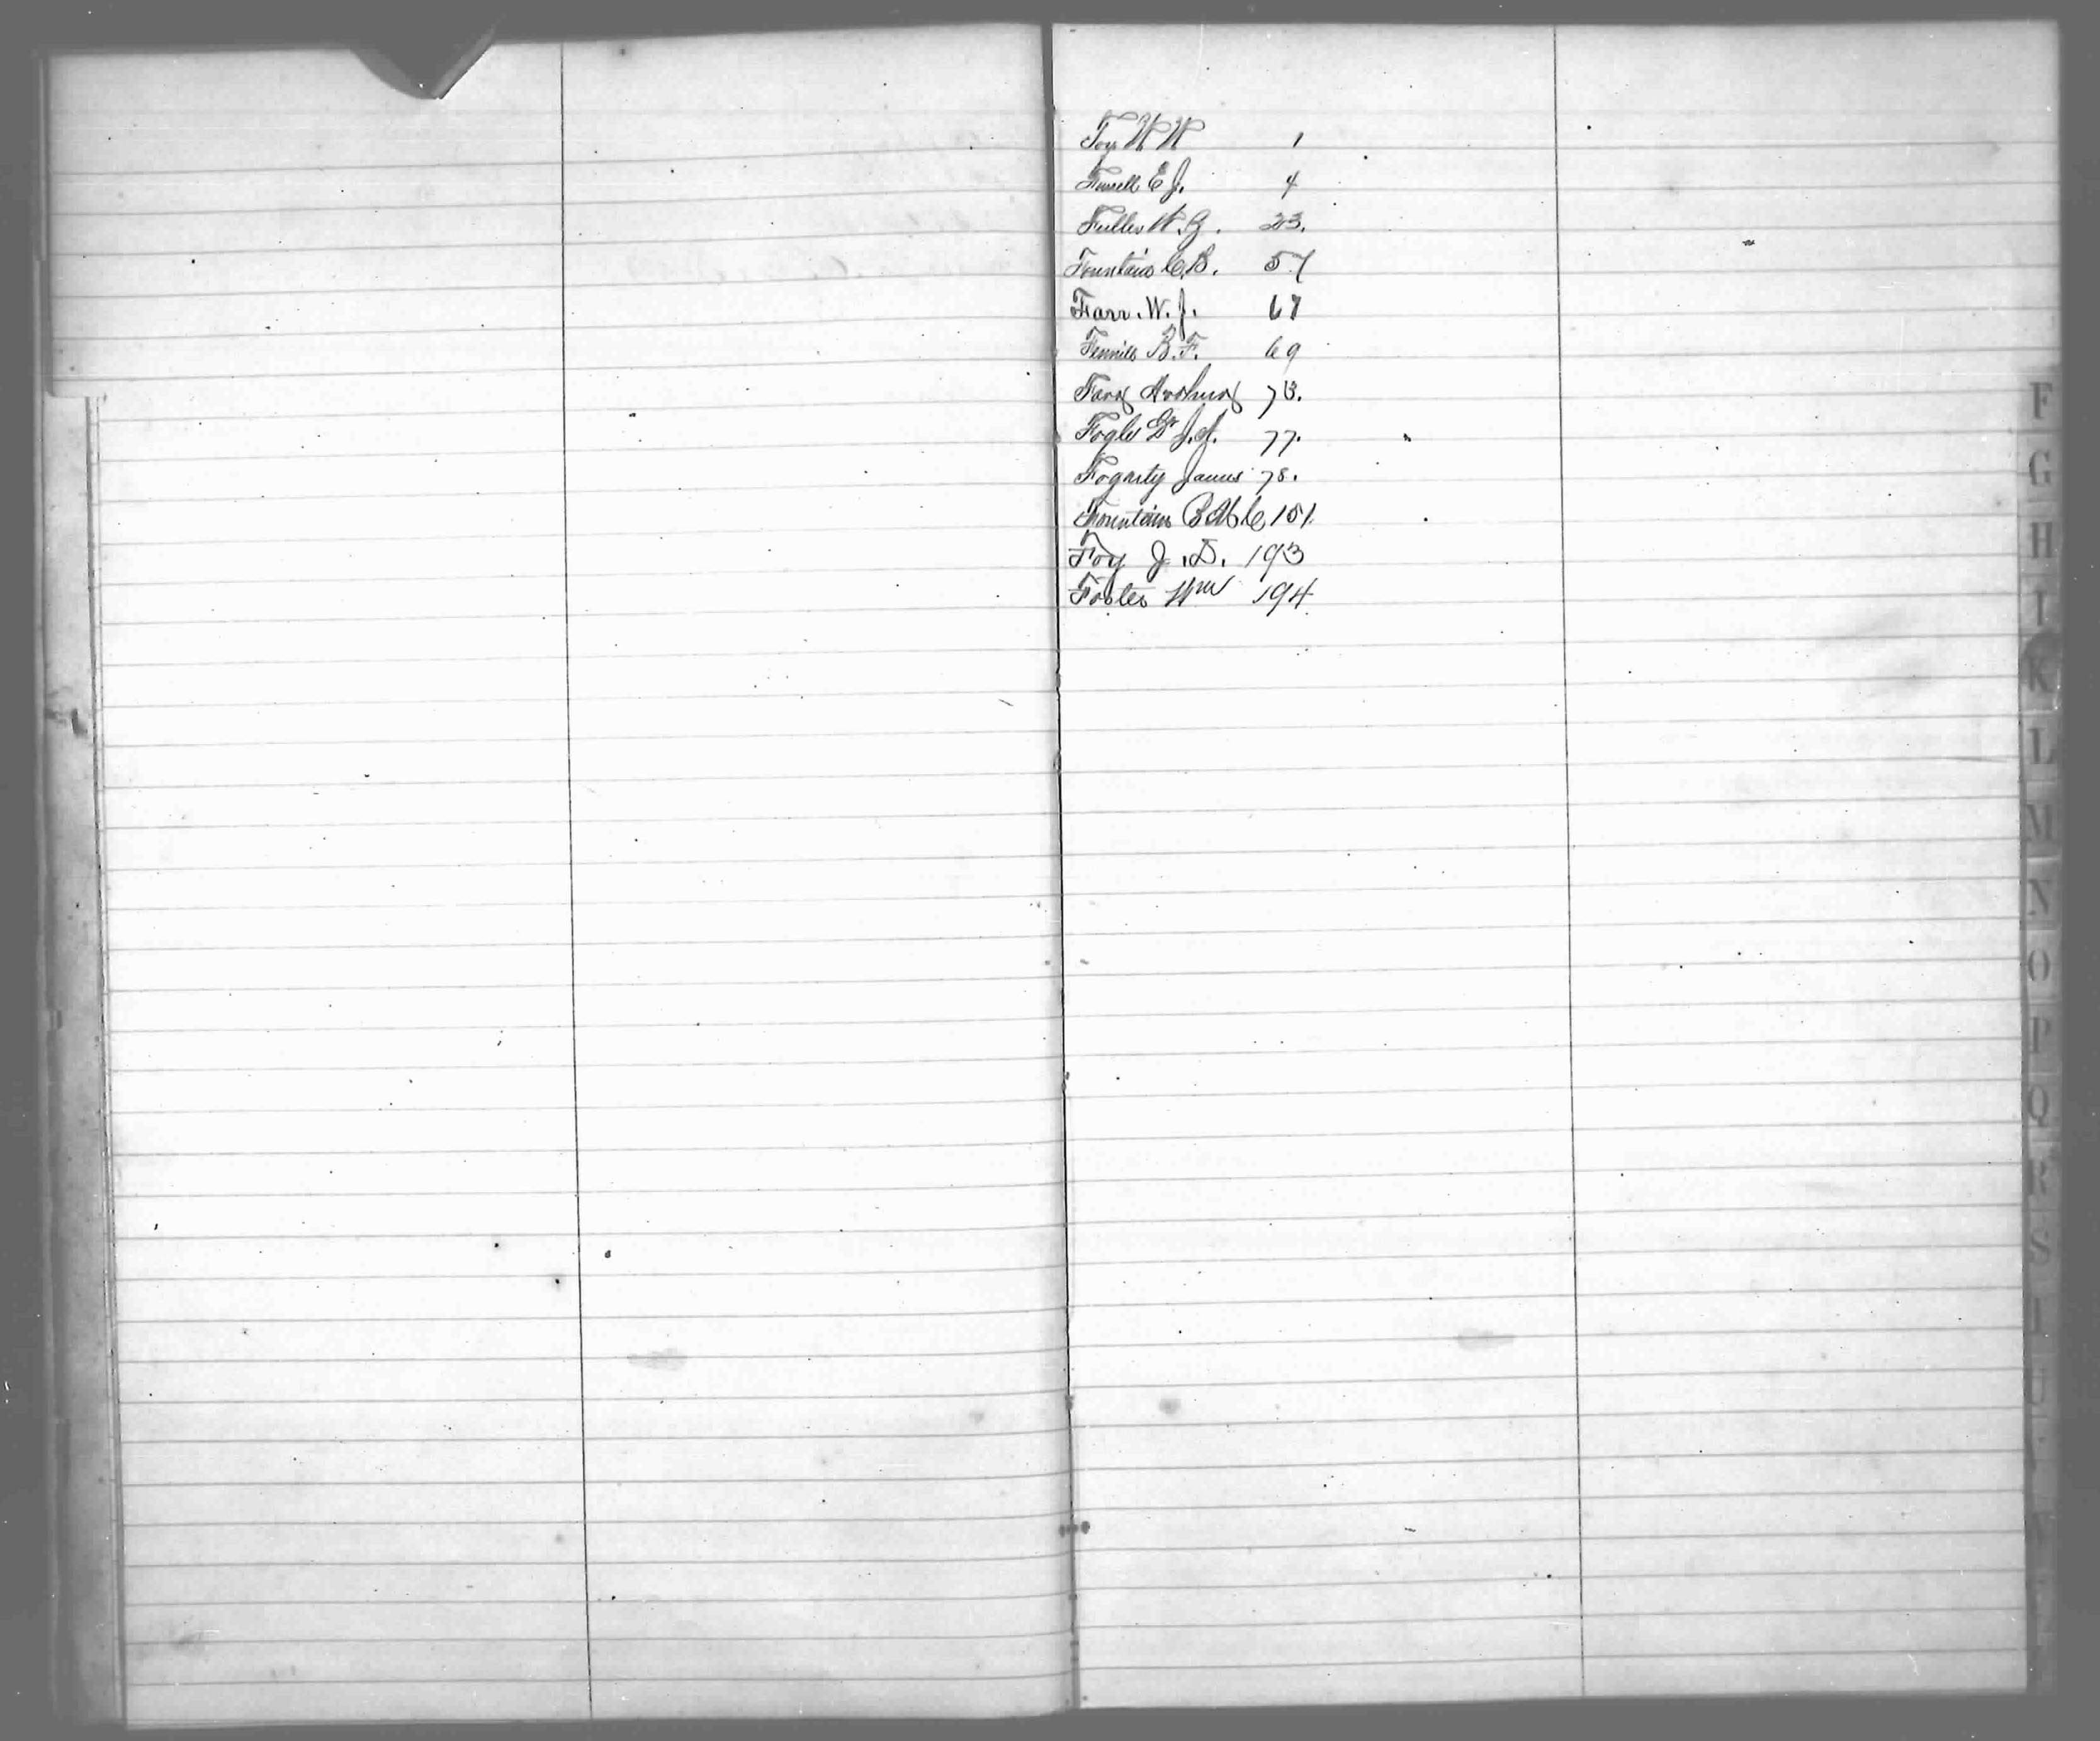 Foy W W 1
Fussell E J. 4
Fuller W. G. 23.
Fountain C. B. 57
Farr. W. J. 67
Fennill B. F. 69
Farr Arthur 73.
Fogle Dr J. A. 77.
Fogarty James 78.
Fountain 151.
Foy J. D. 193
Foster Wm 194
F
G
H
I
K
L
M
N
O
P
Q
R
S
T
U